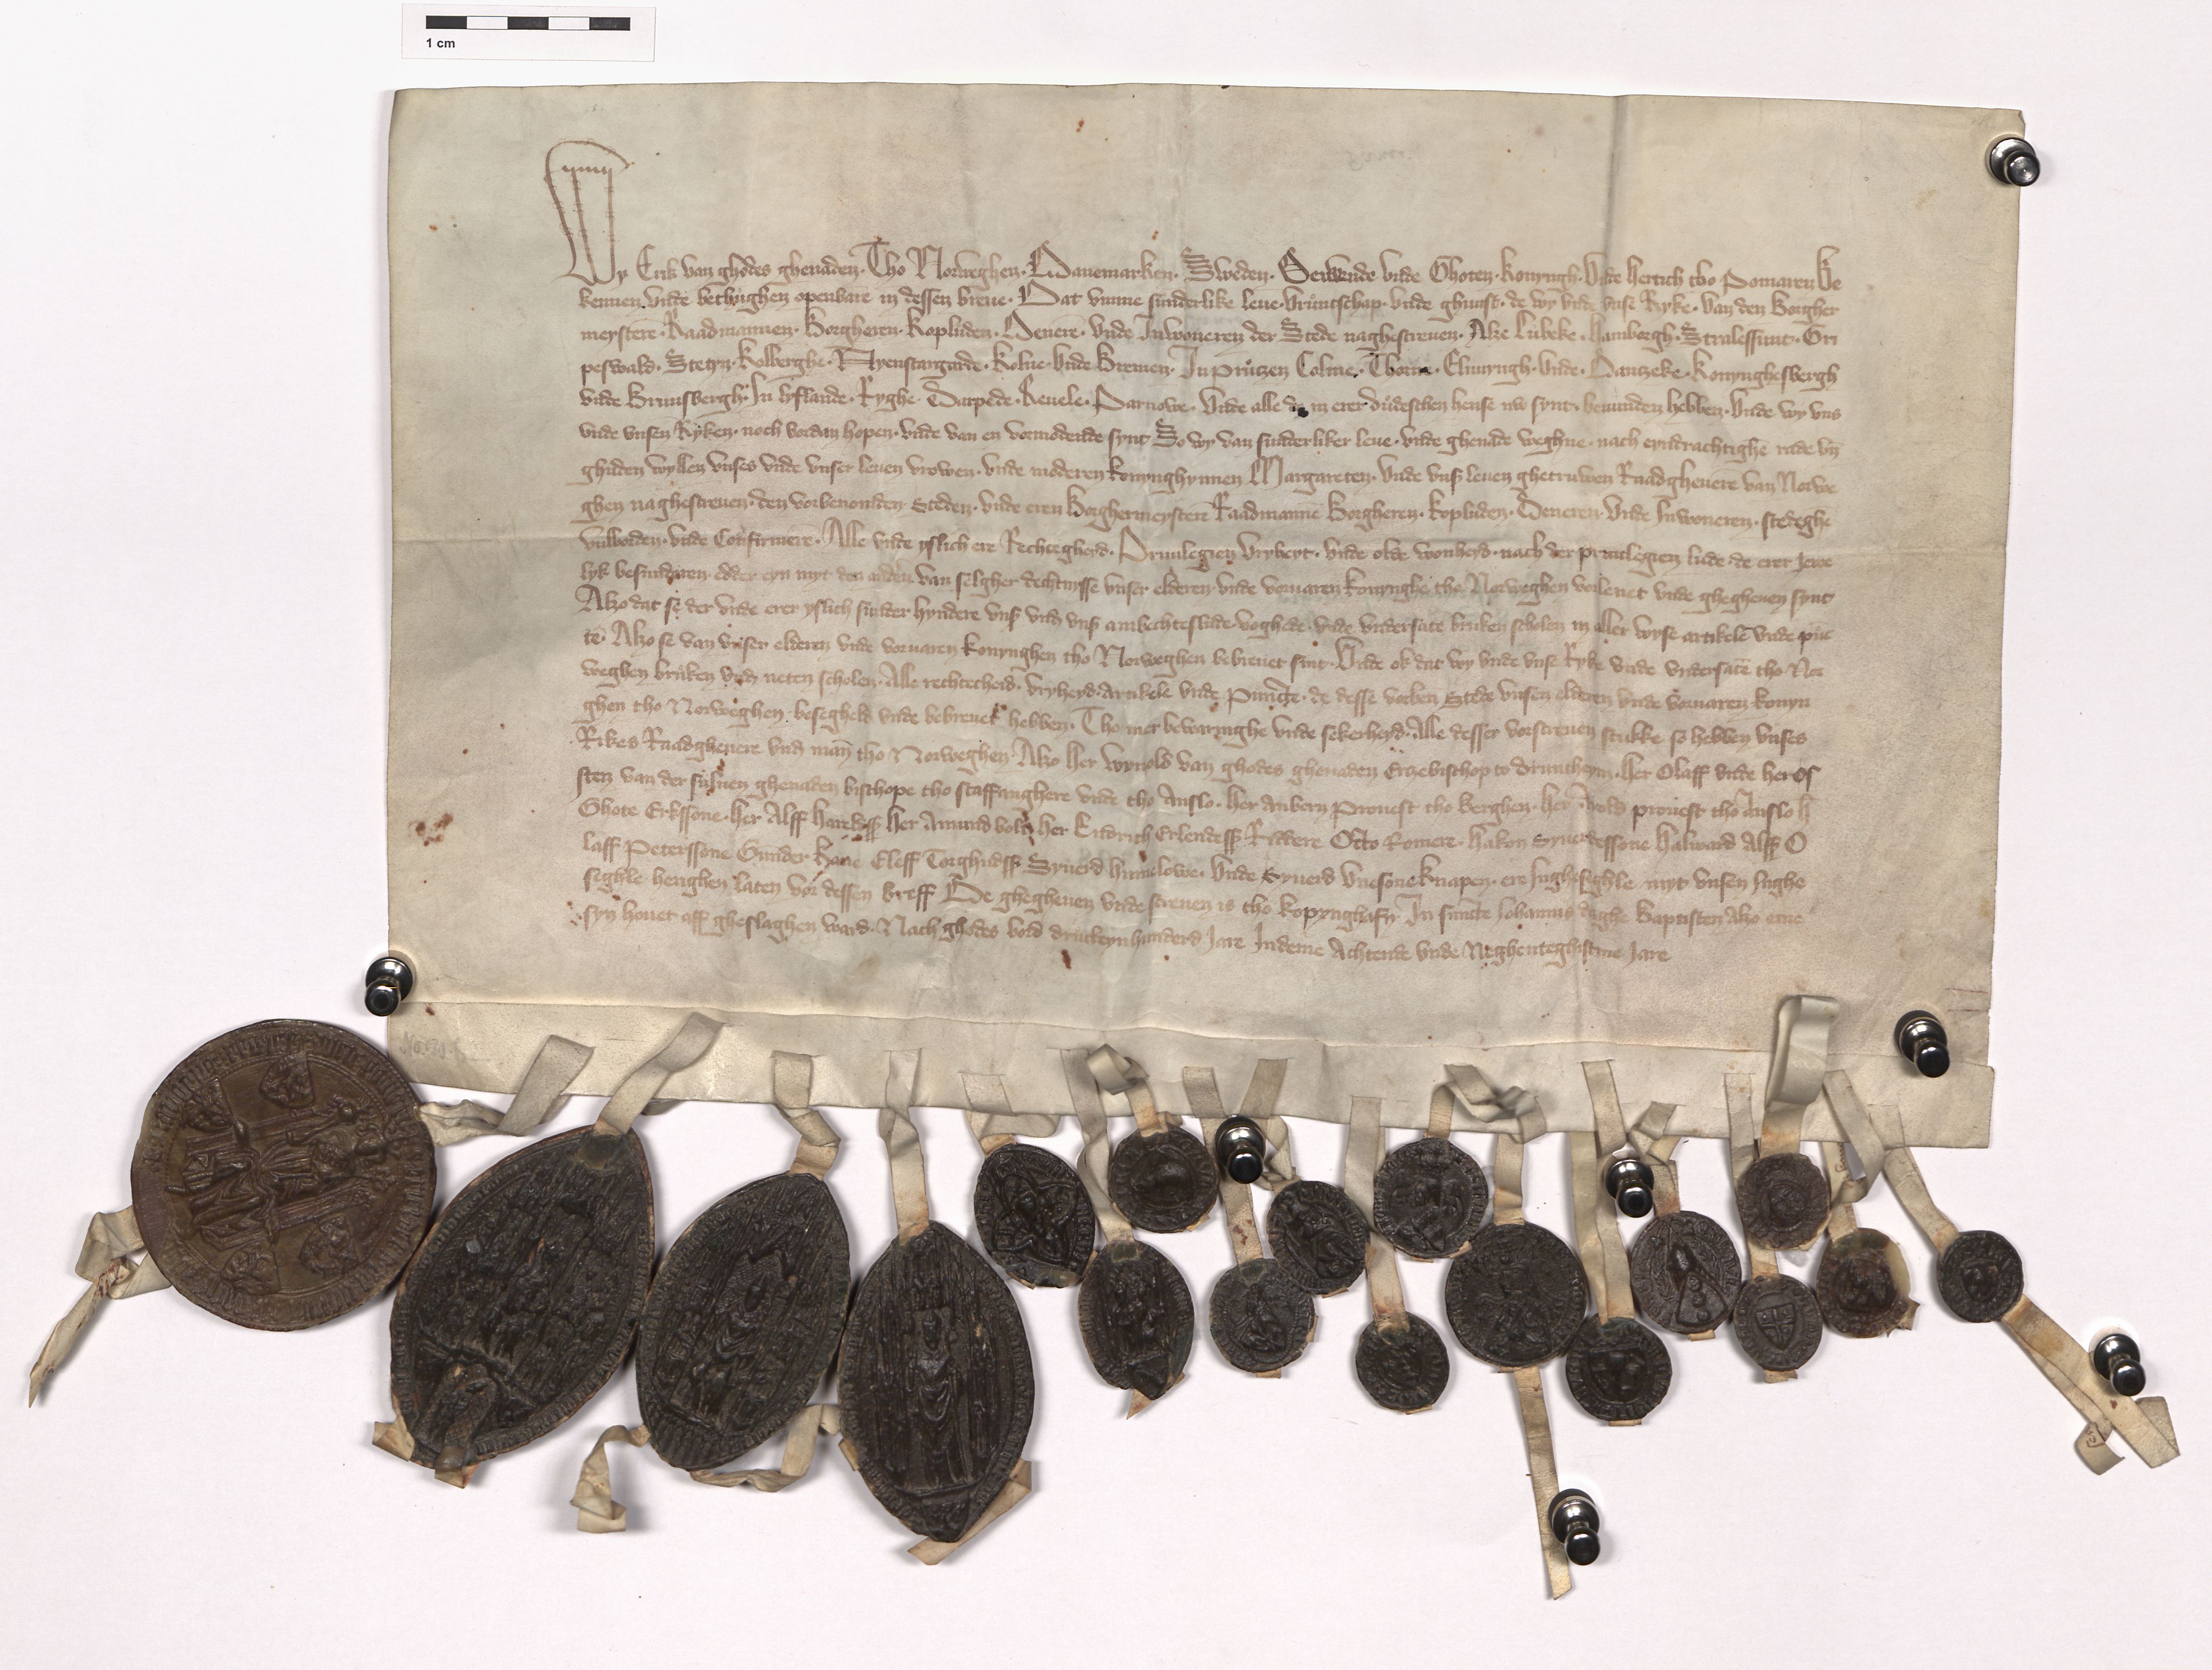 1 cm
Wy Erik van ghodes ghenaden. Tho Norweghen. Danemarken. Sweden. Der wende vnde Ghoten. konyngh. Vnde hertich tho Pomaren Be
kennen vnde bethughen openbare in dessen breue. Dat vmme sunderlike leue. vruntschap. vnde ghunst. de wy vnde vnse Ryke. van den Borgher
meystere Raadmannen. Borgheren. kopluden. Denere. vnde Inwoneren der Stede naghescreuen. Alze Lubeke. Hamborgh. Stralessunt. Gri
peswald. Stetyn. kolberghe. Nyenstargarde. kolne. vnde Bremen. In pruzen Colme. Thorun. Eluyngh. vnde. Dantzeke. konynghesbergh
vnde Brunsbergh. In lyflande. Ryghe. Darpede. Reuele. Parnowe. Vnde alle de in erer dudeschen hense nw synt. beuunden hebben. Vnde wy vns
vnde vnsen Ryken. noch vordan hopen. vnde van en vormodende synt So wy van sunderliker leue. vnde ghenade weghne. nach eyndrachtighe rade vn
ghuden wyllen vnses vnde vnser leuen vrowen. vnde moderen konynghynnen Margareten. vnde vnß leuen ghetruwen Raadgheuere van Norwe
ghen naghescreuen. den vorbenomden Steden. vnde eren Borghermeystere Raadmanne Borgheren. kopluden. Deneren. vnde Inwoneren. stedeghe
vulborden. vnde Confirmere. Alle vnde yslich ere Rechtegheyd. Priuilegien vryheyt. vnde olde wonheyd. nach der priuilegien lude. de erer Jewe
lyk besunderen. edder eyn myt den anderen van selgher dechtnisse vnser elderen. vnde voruaren konynghe tho Norweghen vorlenet vnde ghegheuen synt
Alzo dat se der vnde erer yslich sunder hyndere vnß vnd vnß ambechteslude. voghede. vnde vndersate bruken scholen in aller wyse artikele vnde punc
te Alzo se van vnser elderen vnde voruaren konynghen tho Norweghen bebreuet sint. Vnde ok dat wy vnde vnse Ryke vnde vndersate tho Nor
weghen bruken vnd neten scholen. Alle rechtecheid. vryheyd. Artikele vnde Puncte. de desse vorben Stede vnsen elderen vnde voruaren konyn
ghen tho Norweghen. besegheld vnde bebreuet hebben. Tho mer bewarynghe vnde sekerheyd. Alle desser vorscreuen stukke so hebben vnses
Rikes Raadgheuere vnd man tho Norweghen. Alzo Her wynold van ghodes ghenaden Erzebischop to druntheym. Her Olaff vnde her Oy
sten van der suluen ghenaden bischope tho staffanghere vnde tho Anslo. her Anbern Prouest tho Berghen. her Arold prouest tho Anslo h
Ghote Erkssone. her Alff hareldß her Amund bolt her Endrich Erlendesß Riddere Otto Romere. hakon Syuerdessone Halward Alfß O
laff Peterssone Gunder kane Eleff Torghudß Syuerd humelowe. vnde Syuerd vnesone knapen. ere Inghesegle myt vnsen Inghe
seghle henghen laten vor dessen breff De ghegheuen vnde screuen is tho kopynghafn In sunte Johannis daghe Baptisten Alzo eme
syn houet aff gheslaghen ward. Nach ghodes bord drutteynhunderd Jare In deme Achtende vnde Neghenteghistme Jare